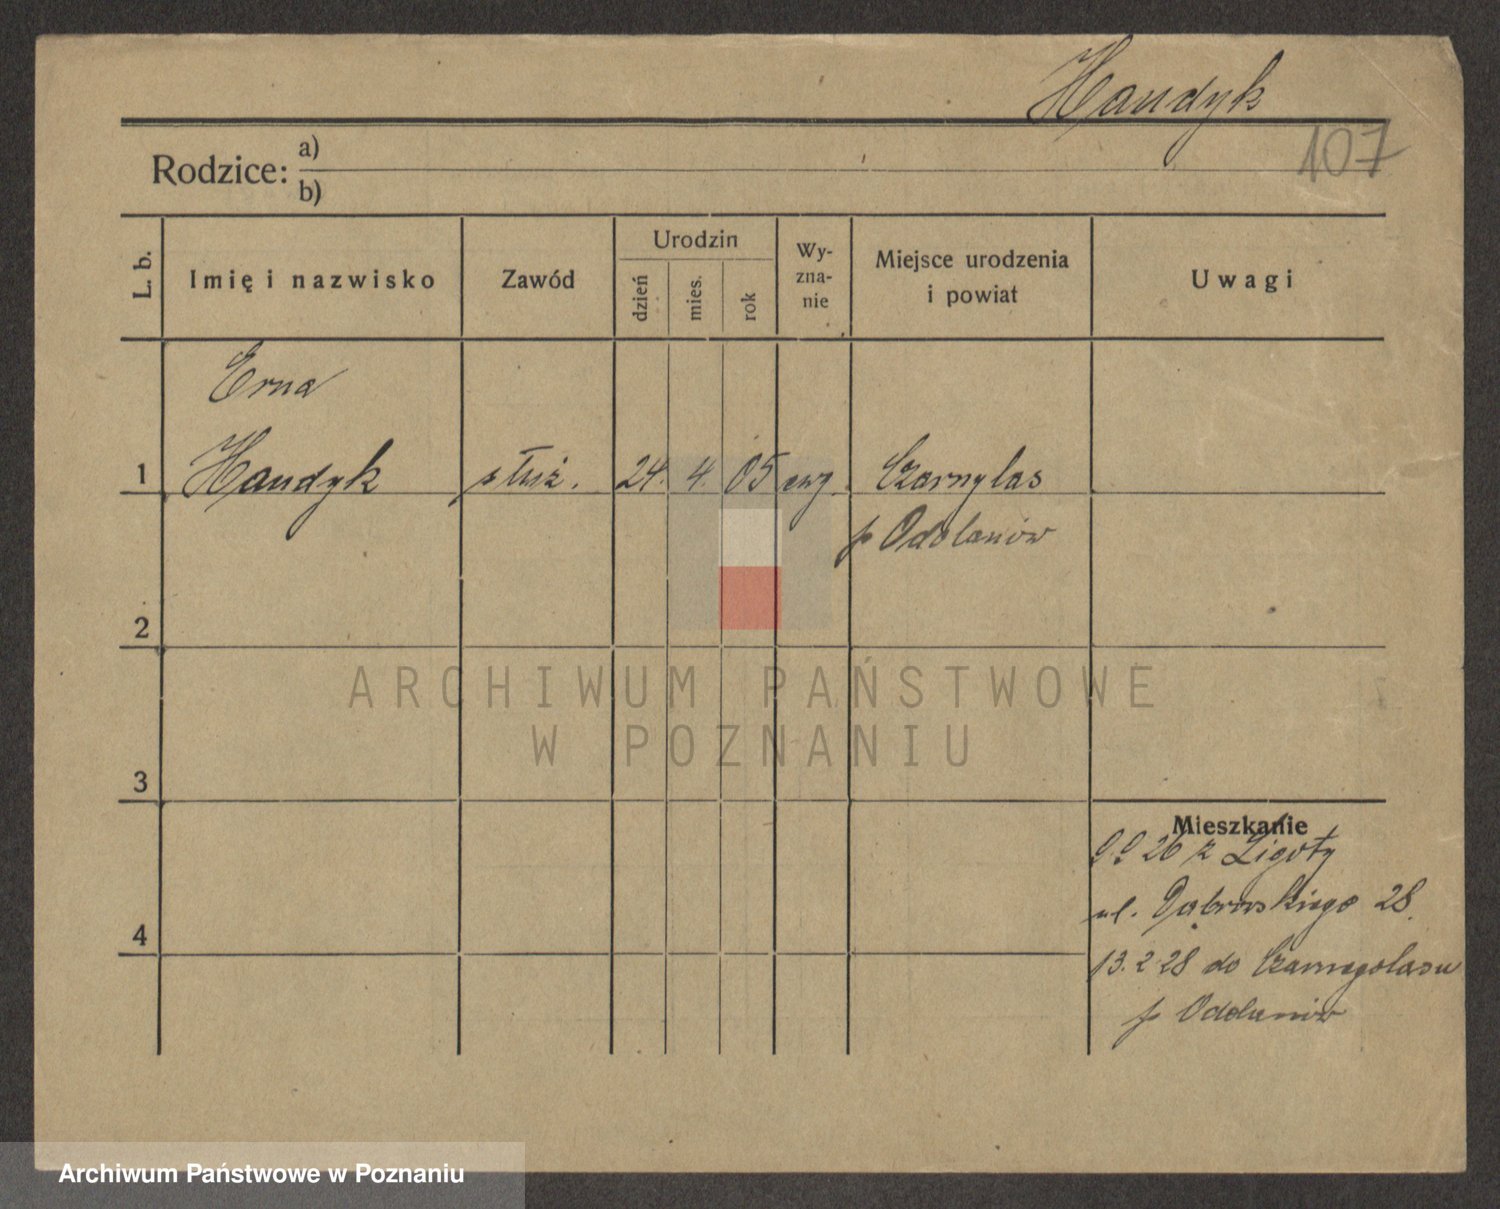 Handyk
107
Rodzice: a)
b)
L. b.
Imię i nazwisko
Zawód
Urodzin
dzień
mies.
rok
Wy-
zna-
nie
Miejsce urodzenia
i powiat
Uwagi
Erna
1 Handyk służ. 24. 4. 05 ewg. Czarnylas
p Odolanów
2
3
4
Mieszkanie
9 9 26 z Ligoty
ul. Dąbrowskiego 28.
13. 2 28 do Czarnegolasu
p Odolanów
ARCHIWUM PAŃSTWOWE
W POZNANIU
Archiwum Państwowe w Poznaniu